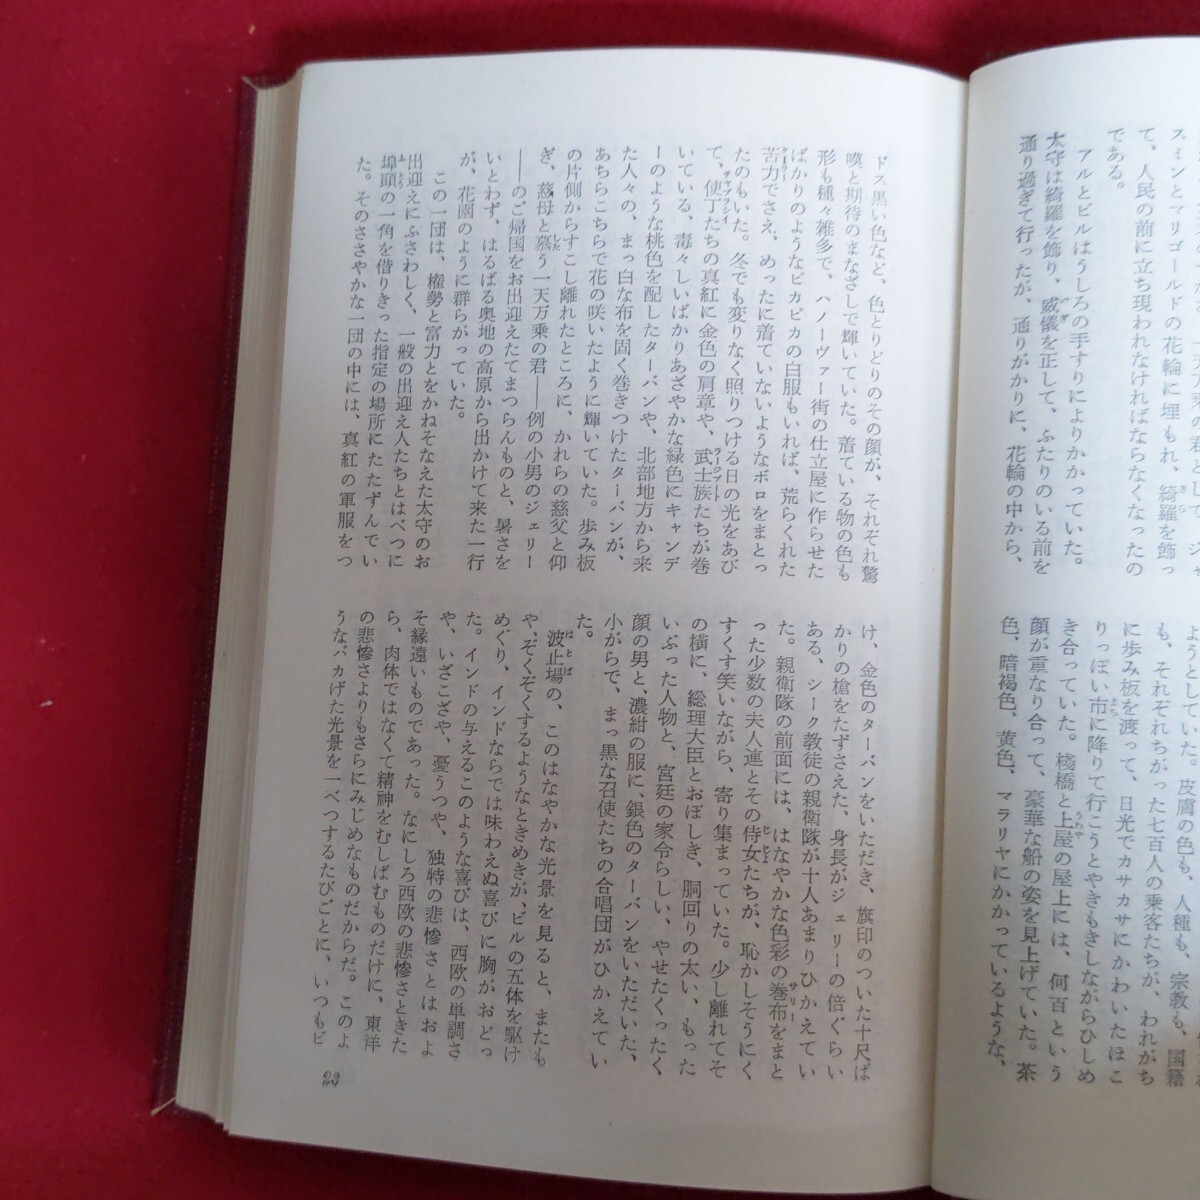 スミンとマリゴールドの花輪に埋もれ、綺羅を飾っ
て、人民の前に立ち現われなければならなくなったの
である。
アルとビルはうしろの手すりによりかかっていた。
太守は綺羅を飾り、威儀を正して、ふたりのいる前を
通り過ぎて行ったが、通りがかりに、花輪の中から、
ようとしていた。皮膚の色も、人種も、宗教も、国籍
も、それぞれちがった七百人の乗客たちが、われがち
に歩み板を渡って、日光でカサカサにかわいたほこ
りっぽい市に降りて行こうとやきもきしながらひしめ
き合っていた。桟橋と上屋の屋上には、何百という
顔が重なり合って、豪華な船の姿を見上げていた。茶
色、暗褐色、黄色、マラリヤにかかっているような、
ドス黒い色など、色とりどりのその顔が、それぞれ驚
嘆と期待のまなざしで輝いていた。着ている物の色も
形も種々雑多で、ハノーヴァー街の仕立屋に作らせた
ばかりのようなピカピカの白服もいれば、荒らくれた
苦力でさえ、めったに着ていないようなボロをまとっ
たのもいた。冬でも変りなく照りつける日の光をあび
て、使丁たちの真紅に金色の肩章や、武士族たちが巻
いている、毒々しいばかりあざやかな緑色にキャンデ
ーのような桃色を配したターバンや、北部地方から来
た人々の、まっ白な布を固く巻きつけたターバンが、
あちらこちらで花の咲いたように輝いていた。歩み板
の片側からすこし離れたところに、かれらの慈父と仰
ぎ、慈母と慕う一天万乗の君――例の小男のジェリー
――のご帰国をお出迎えたてまつらんものと、暑さを
いとわず、はるばる奥地の高原から出かけて来た一行
が、花園のように群らがっていた。
この一団は、権勢と富力とをかねそなえた太守のお
出迎えにふさわしく、一般の出迎え人たちとはべつに
埠頭の一角を借りきった指定の場所にたたずんでい
た。そのささやかな一団の中には、真紅の軍服をつ
け、金色のターバンをいただき、旗印のついた十尺ば
かりの槍をたずさえた、身長がジェリーの倍ぐらい
ある、シーク教徒の親衛隊が十人あまりひかえてい
た。親衛隊の前面には、はなやかな色彩の巻布をまと
った少数の夫人連とその侍女たちが、恥かしそうにく
すくす笑いながら、寄り集まっていた。少し離れてそ
の横に、総理大臣とおぼしき、胴回りの太い、もった
いぶった人物と、宮廷の家令らしい、やせたくったく
顔の男と、濃紺の服に、銀色のターバンをいただいた、
小がらで、まっ黒な召使たちの合唱団がひかえてい
た。
波止場の、このはなやかな光景を見ると、またも
や、ぞくぞくするようなときめきが、ビルの五体を駆け
めぐり、インドならでは味わえぬ喜びに胸がおどっ
た。インドの与えるこのような喜びは、西欧の単調さ
や、いざこざや、憂うつや、独特の悲惨さとはおよ
そ縁遠いものであった。なにしろ西欧の悲惨さときた
ら、肉体ではなくて精神をむしばむものだけに、東洋
の悲惨さよりもさらにみじめなものだからだ。このよ
うなバカげた光景を一べつするたびごとに、いつもビ
23